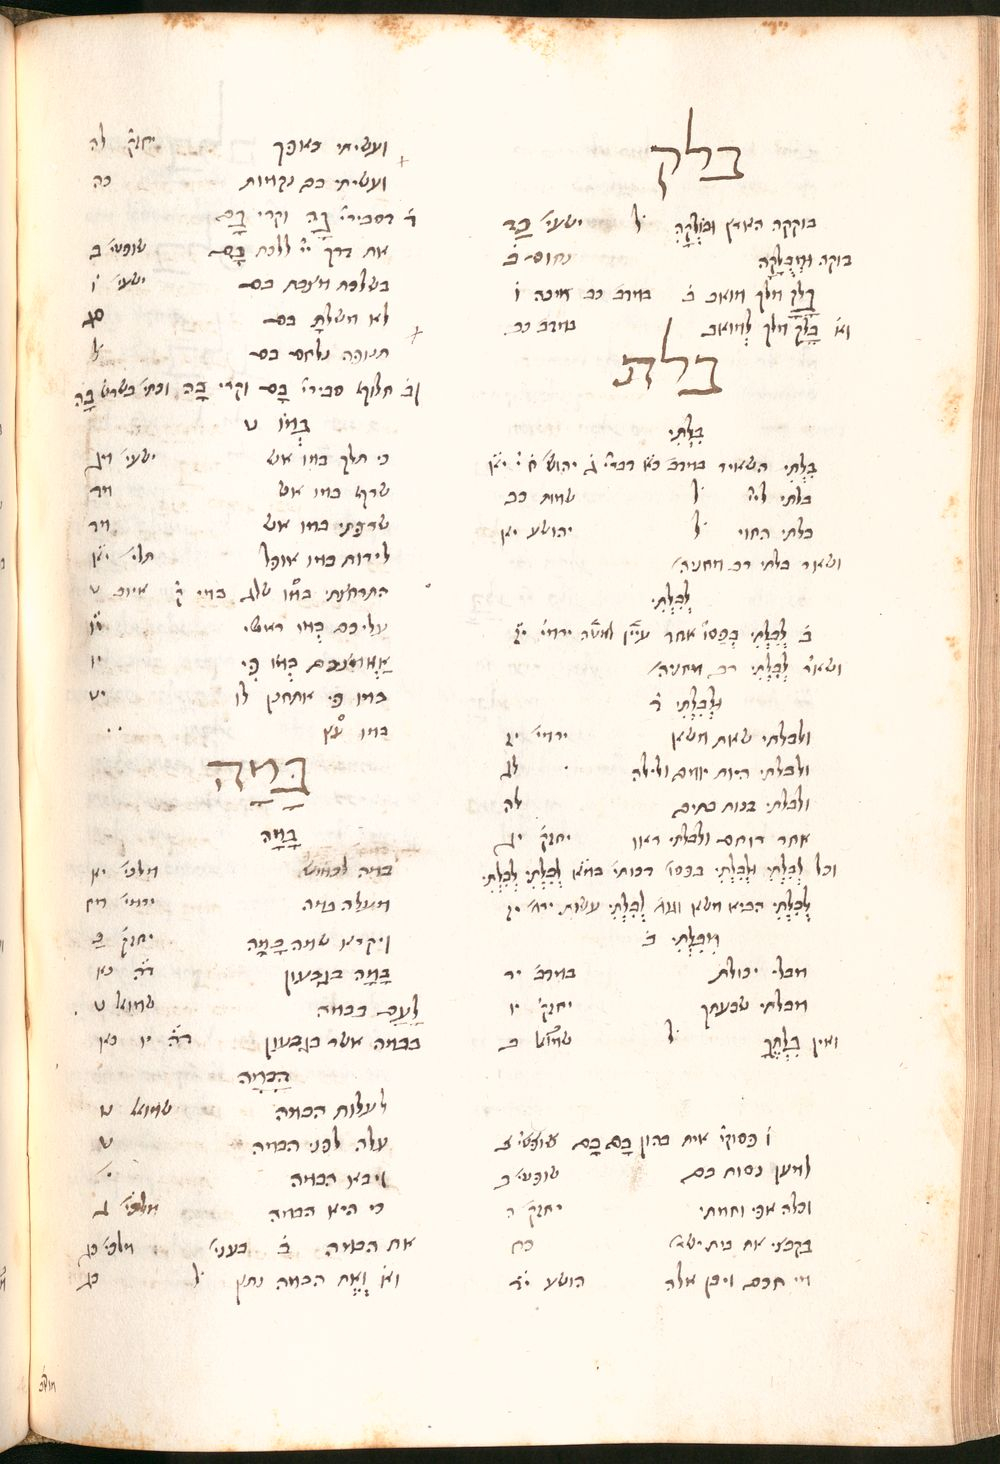 בלק
בוקקה הארץ ובולקה ל ישעי׳ כד
בוקה ומבלקה נחום ב
בלק מלך מואב ב במדב׳ כב מיכה ו
וא׳ בלק מלך למואב במדב׳ כב
בלת
בלתי
בלתי השאיר במדב׳ כא דברי׳ ג יהוש׳ ח י יא
בלתי ליי׳ ל שמות כב
בלתי החוי ל יהושע יא
ושאר בלתי רב מחניה
לבלתי
ב לבלתי אחר ירמי׳
ושאר׳ לבלתי רב מחניה
ולבלתי ד
ולבלתי שאת משא ירמי׳ יז
ולבלתי היות יומם ולילה לג
ולבלתי בנות בתים לה
אחר רוחם ולבלתי ראוו יחזק׳ יג
וכל לבלתי ולבלתי
לבלתי הביא משא לבלתי עשות ירמ׳ יז
מבלתי ב
מבלי יכולת במדב׳ יד
מבלתי שבעתך יחזק׳ יו
ואין בלתך ל שמוא׳ ב
ו פסוקי׳ אית בהון בם בם שופטי׳ ב
למען נסות בם שופטי׳ ב
וכלה אפי וחמתי יחזק׳ ה
בקבצי את בית ישר׳ כח
מי חכם ויבן אלה הושע יד
ועשיתי כאפך יחזק׳ לה
ועשיתי בם נקמות כה
ד דסבירי׳ בה וקרי בם
את דרך יי׳ ללכת בם שופטי׳ ב
בשלכת מצבת בם ישעי׳ ו
לא משלת בם סג
תנופה נלחם בם ל
וב׳ חלוק׳ סבירי׳ בם וקרי בה וכתי׳ בשרש בה
במו ט
כי תלך במו אש ישעי׳ מג
שרף במו אש מד
שרפתי במו אש מד
לירות במו אופל תלי׳ יא
התרחצתי במו שלג במי ק׳ איוב ט
עליכם במו ראשי יו
אאמצכם במו פי יו
במו פי אתחנן לו יט
במו עץ
במה
במה
במה לכמוש מלכי׳ יא
מעלה במה ירמי׳ מח
ויקרא שמה במה יחזק׳ כ
במה בגבעון ד״ה כא
לעם בבמה שמואל ט
בבמה אשר בגבעון ד״ה יו כא
הבמה
לעלות הבמה שמואל ט
עלה לפני הבמה ט
ויבא הבמה י
כי היא הבמה מלכי׳ ג
את הבמה ב בעני׳ מלכי׳ כג
וא׳ ואת הבמה נתץ ל כג